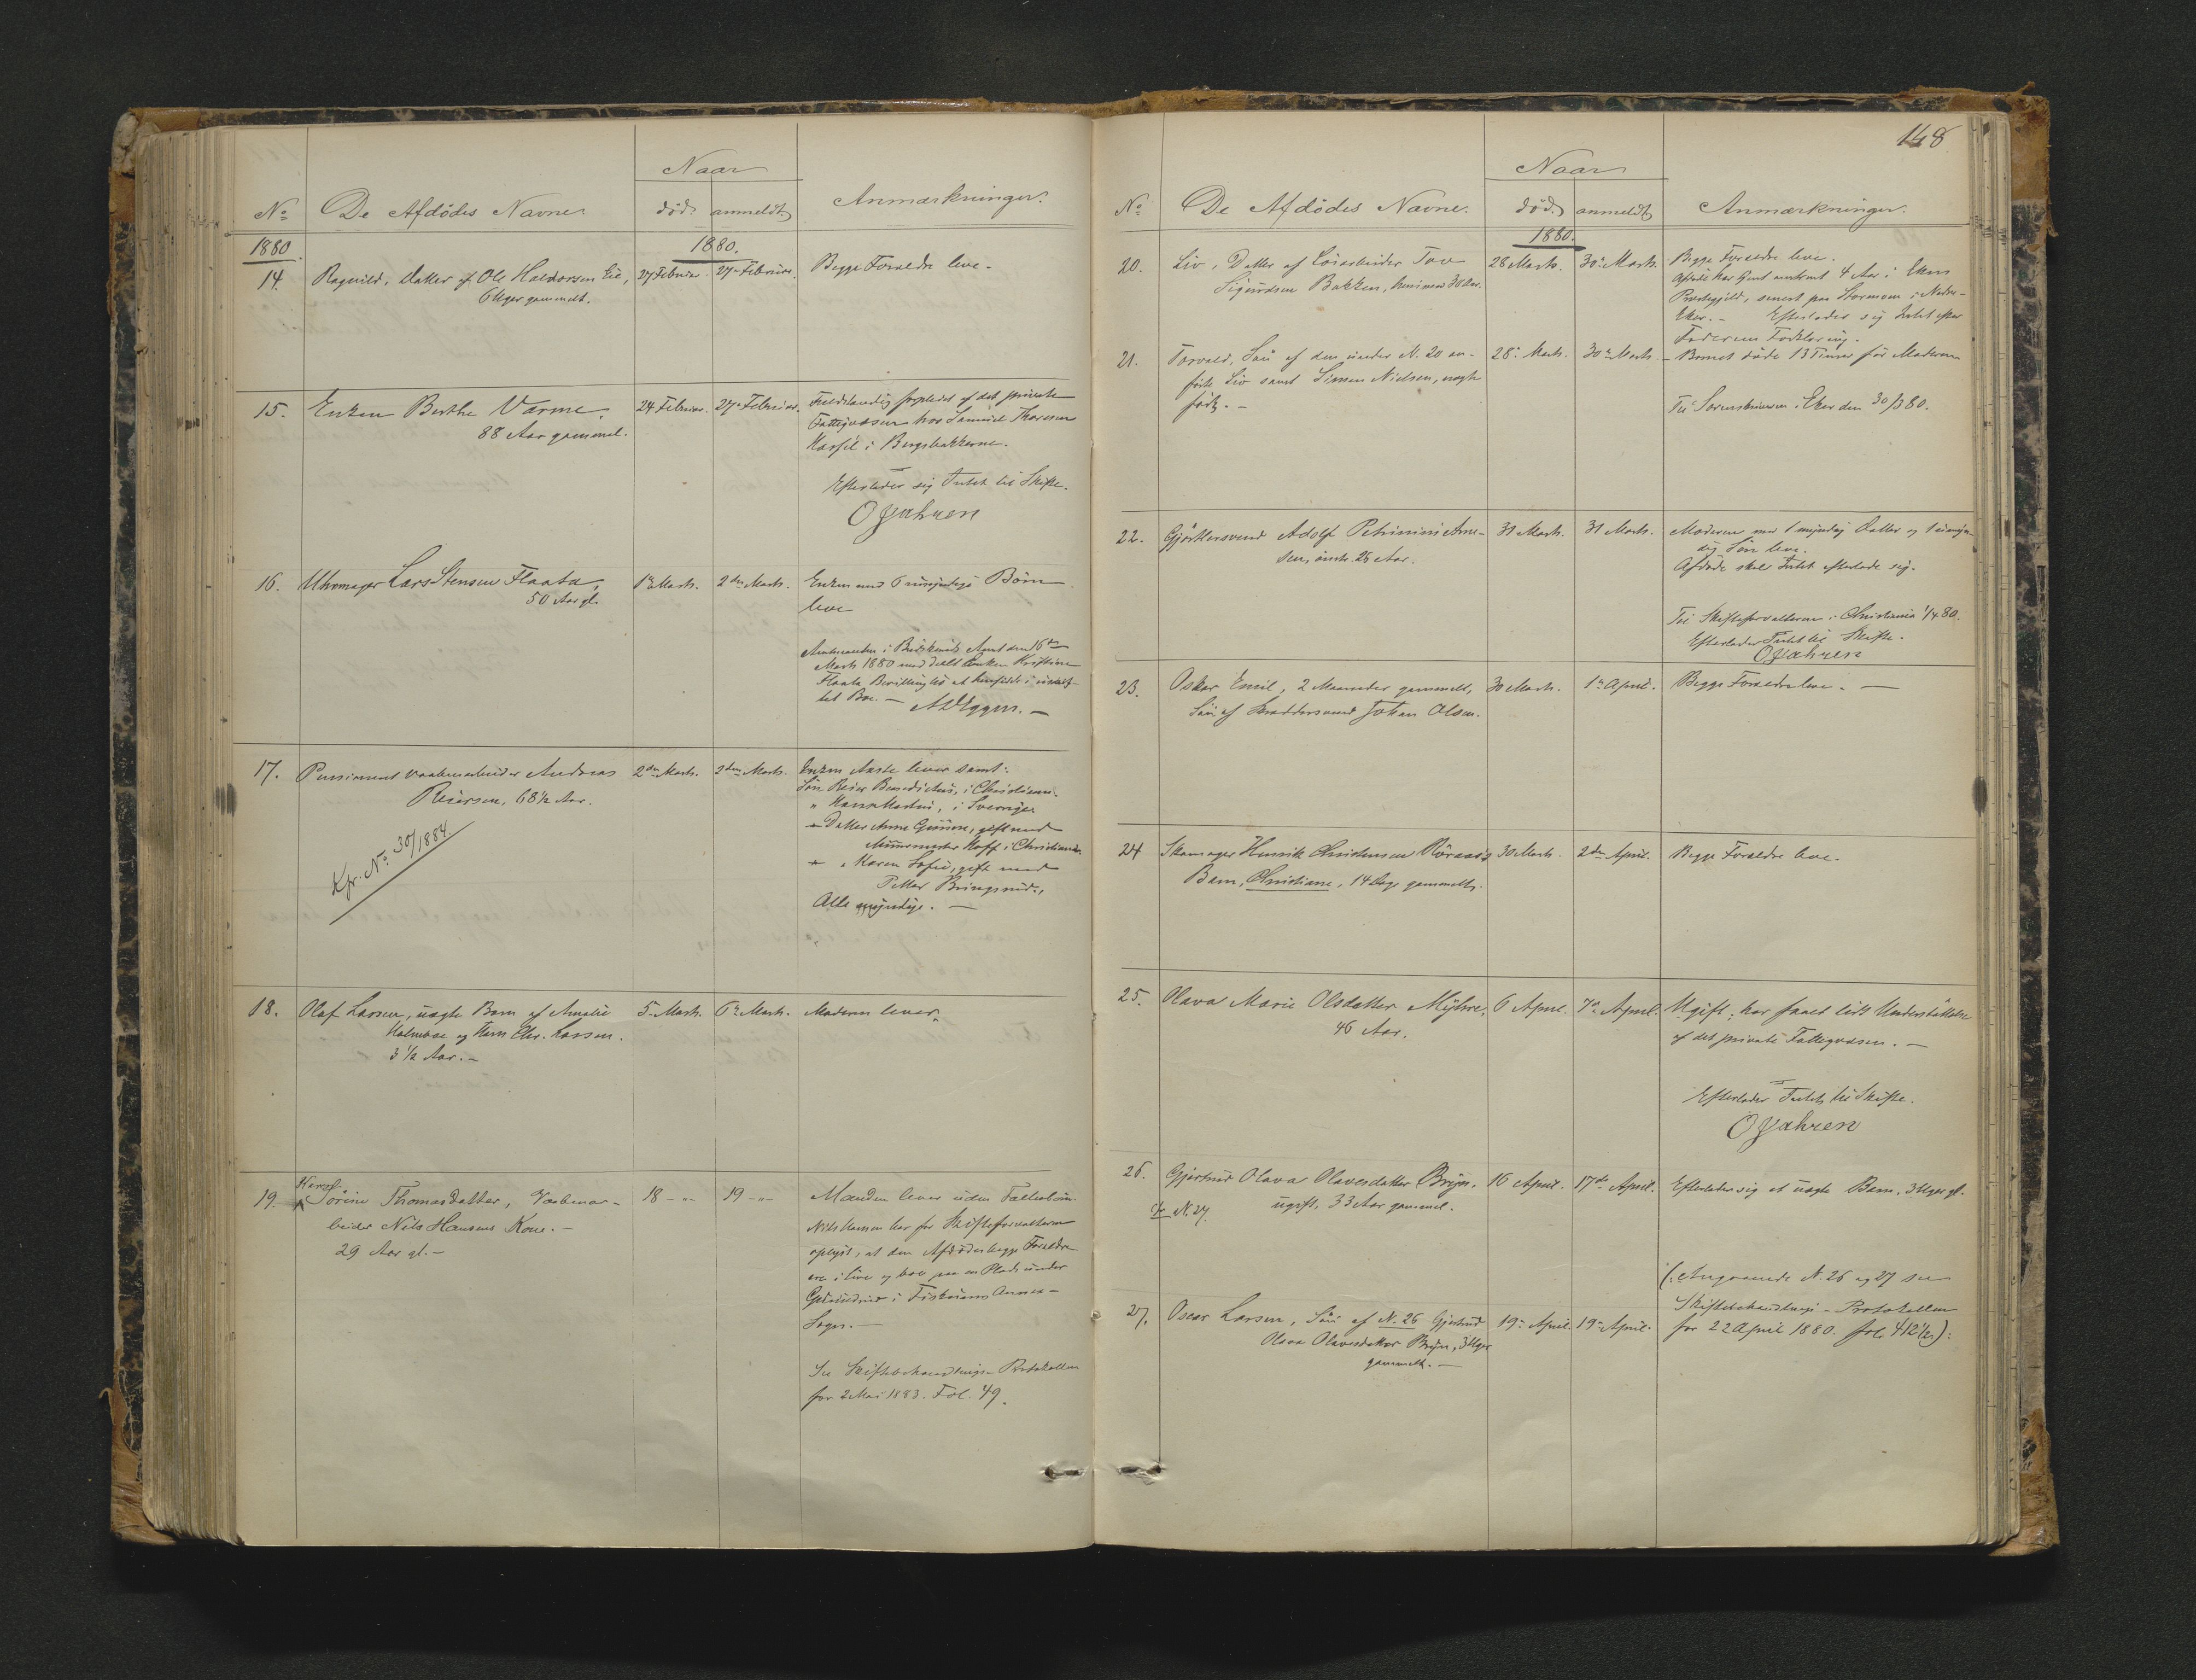 Naar
No De Afdödes Navne. död. anmeldt Anmærkninger.
1880. 1880.
14. Ragnild, Datter af Ole Haldorsen Eie, 27 Februar. 27 Februar. Begge Forældre leve.
6 Uger gammelt.
15. Enken Berthe Varme, 24 Februar. 27 Februar. Fuldstændig forpleiet af det private
88 Aar gammel. Fattigvæsen hos Samuel Thoresen
i Bergsbakkerne.
Efterlader sig Intet til Skifte.
O Jahren
16. Uhrmager Lars Stensen Flaata, 1ste Marts. 2den Marts. Enken med 6 umyndige Börn
50 Aar gl. leve
Amtmanden i Buskeruds Amt den 16de
Marts 1880 meddelt Enken Kristine
Flaata Bevilling til at hensidde i uskif-
tet Bo. —
17. Pensioneret Vaabenarbeider Andreas 2den Marts. 3die Marts. Enken Aaste lever samt:
Reiersen, 68 1/2 Aar. Sön Reier Benedictus, i Christiania.
" Hans Martin, i Sverrige
Datter Anne Gurine, gift med
Murermester Hoff i Christiania
" Maren Sofie, gift med
Petter Bringsrud.,
Alle myndige. —
Kfr. No. 30/1884.
18. Olaf Larsen, uægte Barn af Amalie 5. Marts. 6te Marts. Moderen lever.
Holmboe og Hans Chr. Larsen.
3 1/2 Aar. —
19. Sörine Thomasdatter, Vaabenar- 18 — " — 19 — " — Manden lever uden Fællesbörn.
beider Nils Hansens Kone. — Nils Hansen har for Skifteforvalteren
29 Aar gl. — oplyst, at den Afdödes begge Forældre
ere i Live og boe paa en Plads under
i Fiskums Annex-
Sogn. —
Se Skiftebehandlings-Protokollen
for 2 Mai 1883. Fol. 49.
148
Naar
No De Afdödes Navne. död. anmeldt Anmærkninger.
1880.
20. Liv, Datter af Löisarbeider Tov 28 Marts. 30te Marts. Begge Forældre leve.
Sigurdsen Bakken, henimod 30 Aar. Afdöde har tjent omtrent 4 Aar i Ekers
Præstegjeld, senest paa Stormoen i Nedre-
Eker. — Efterlader sig Intet efter
Faderens Forklaring.
21. Torvald, Sön af den under N. 20 an- 28. Marts. 30te Marts. — Barnet döde 13 Timer för Moderen
förte Liv samt Simen Nielsen, uægte
födt. — Til Sorenskriveren i Eker den 30/3 80.
22. Gjörtlersvend Adolf Petrinius Arne- 31 Marts. 31 Marts. Moderen med 1 myndig Datter og 1 umyn-
sen, omtr. 26 Aar. dig Sön leve.
Afdöde skal Intet efterlade sig.
Til Skifteforvalteren i Christiania 1/4 80.
Efterlader Intet til Skifte.
O Jahren
23. Oskar Emil, 2 Maaneder gammelt, 30 Marts. 1ste April. Begge Forældre leve. —
Sön af Skræddersvend Johan Olsen.
24 Skomager Henrik Christensen Röraas's 30 Marts. 2den April. Begge Forældre leve.
Barn, Christiane, 14 Dage gammelt.
25. Olava Marie Olsdatter Myhre, 6 April. 7de April. Ugift; har faaet lidt Understöttelse
46 Aar. af det private Fattigvæsen. —
Efterlader Intet til Skifte.
O Jahren
26. Gjertrud Olava Olavesdatter Bryn, 16 April. 17de April. Efterlader sig et uægte Barn, 3 Uger gl.
N. 27. ugift, 33 Aar gammel.
(: Angaaende N. 26 og 27 se
Skiftebehandlings-Protokollen
27. Oscar Larsen, Sön af N. 26 Gjertrud 19. April. 19. April. for 22 April 1880. fol. 412
Olava Olavesdatter Bryn, 3 Uger
gammelt. —